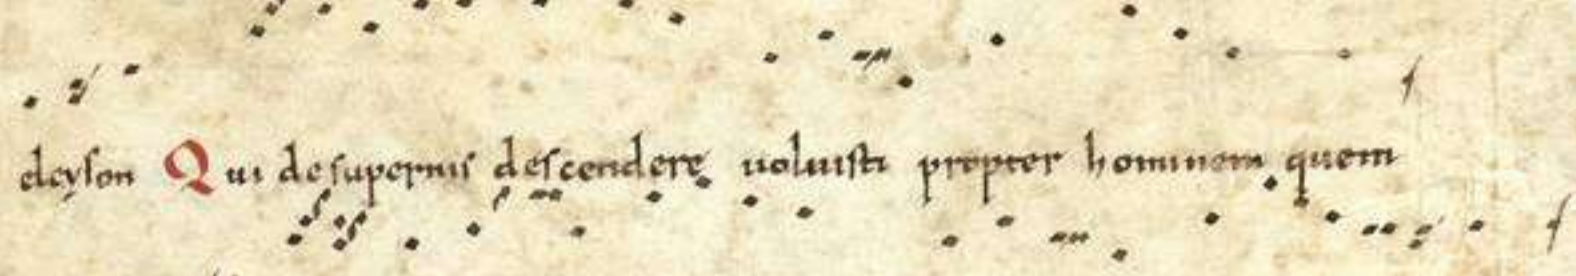 eleyson Qui desupernis descendere uoluisti propter hominem quem